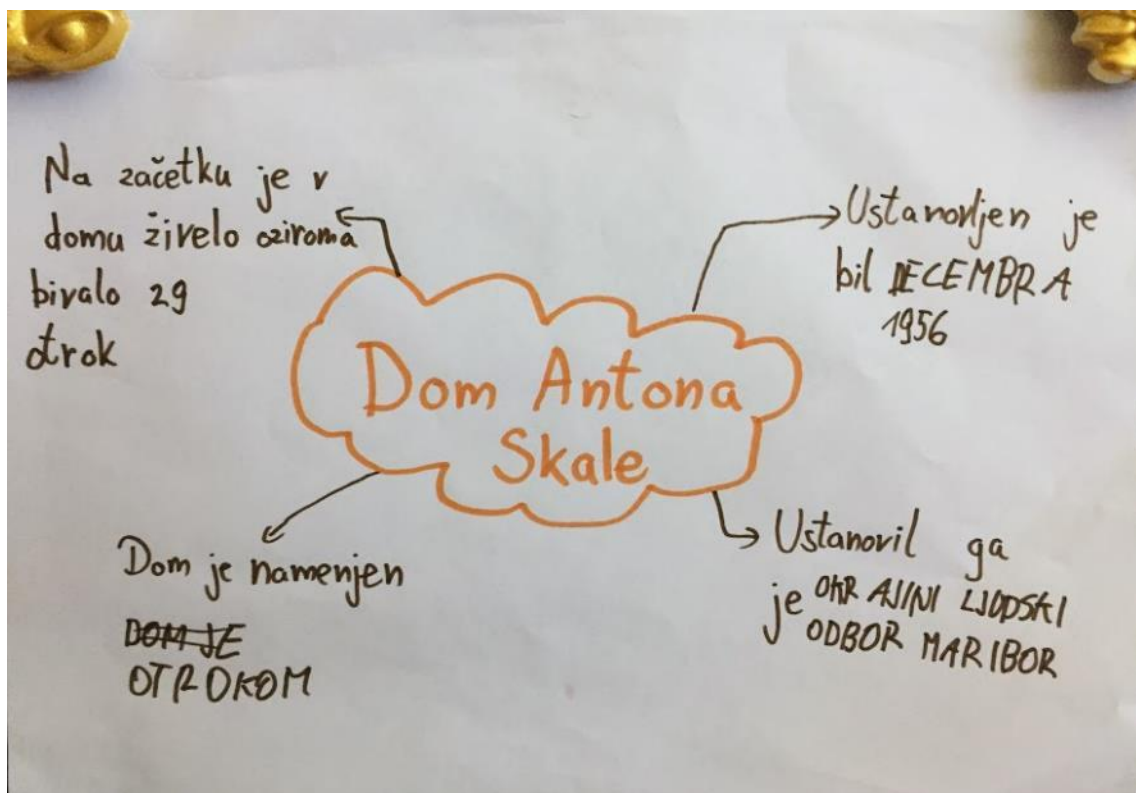 Na začetku je v
domu živelo oziroma
bivalo 29
otrok
Ustanovljen je
bil DECEMBRA
1956
Dom Antona
Skale
Dom je namenjen
DOM JE
OTROKOM
Ustanovil ga
je OKRAJNI LJUDSKI
ODBOR MARIBOR